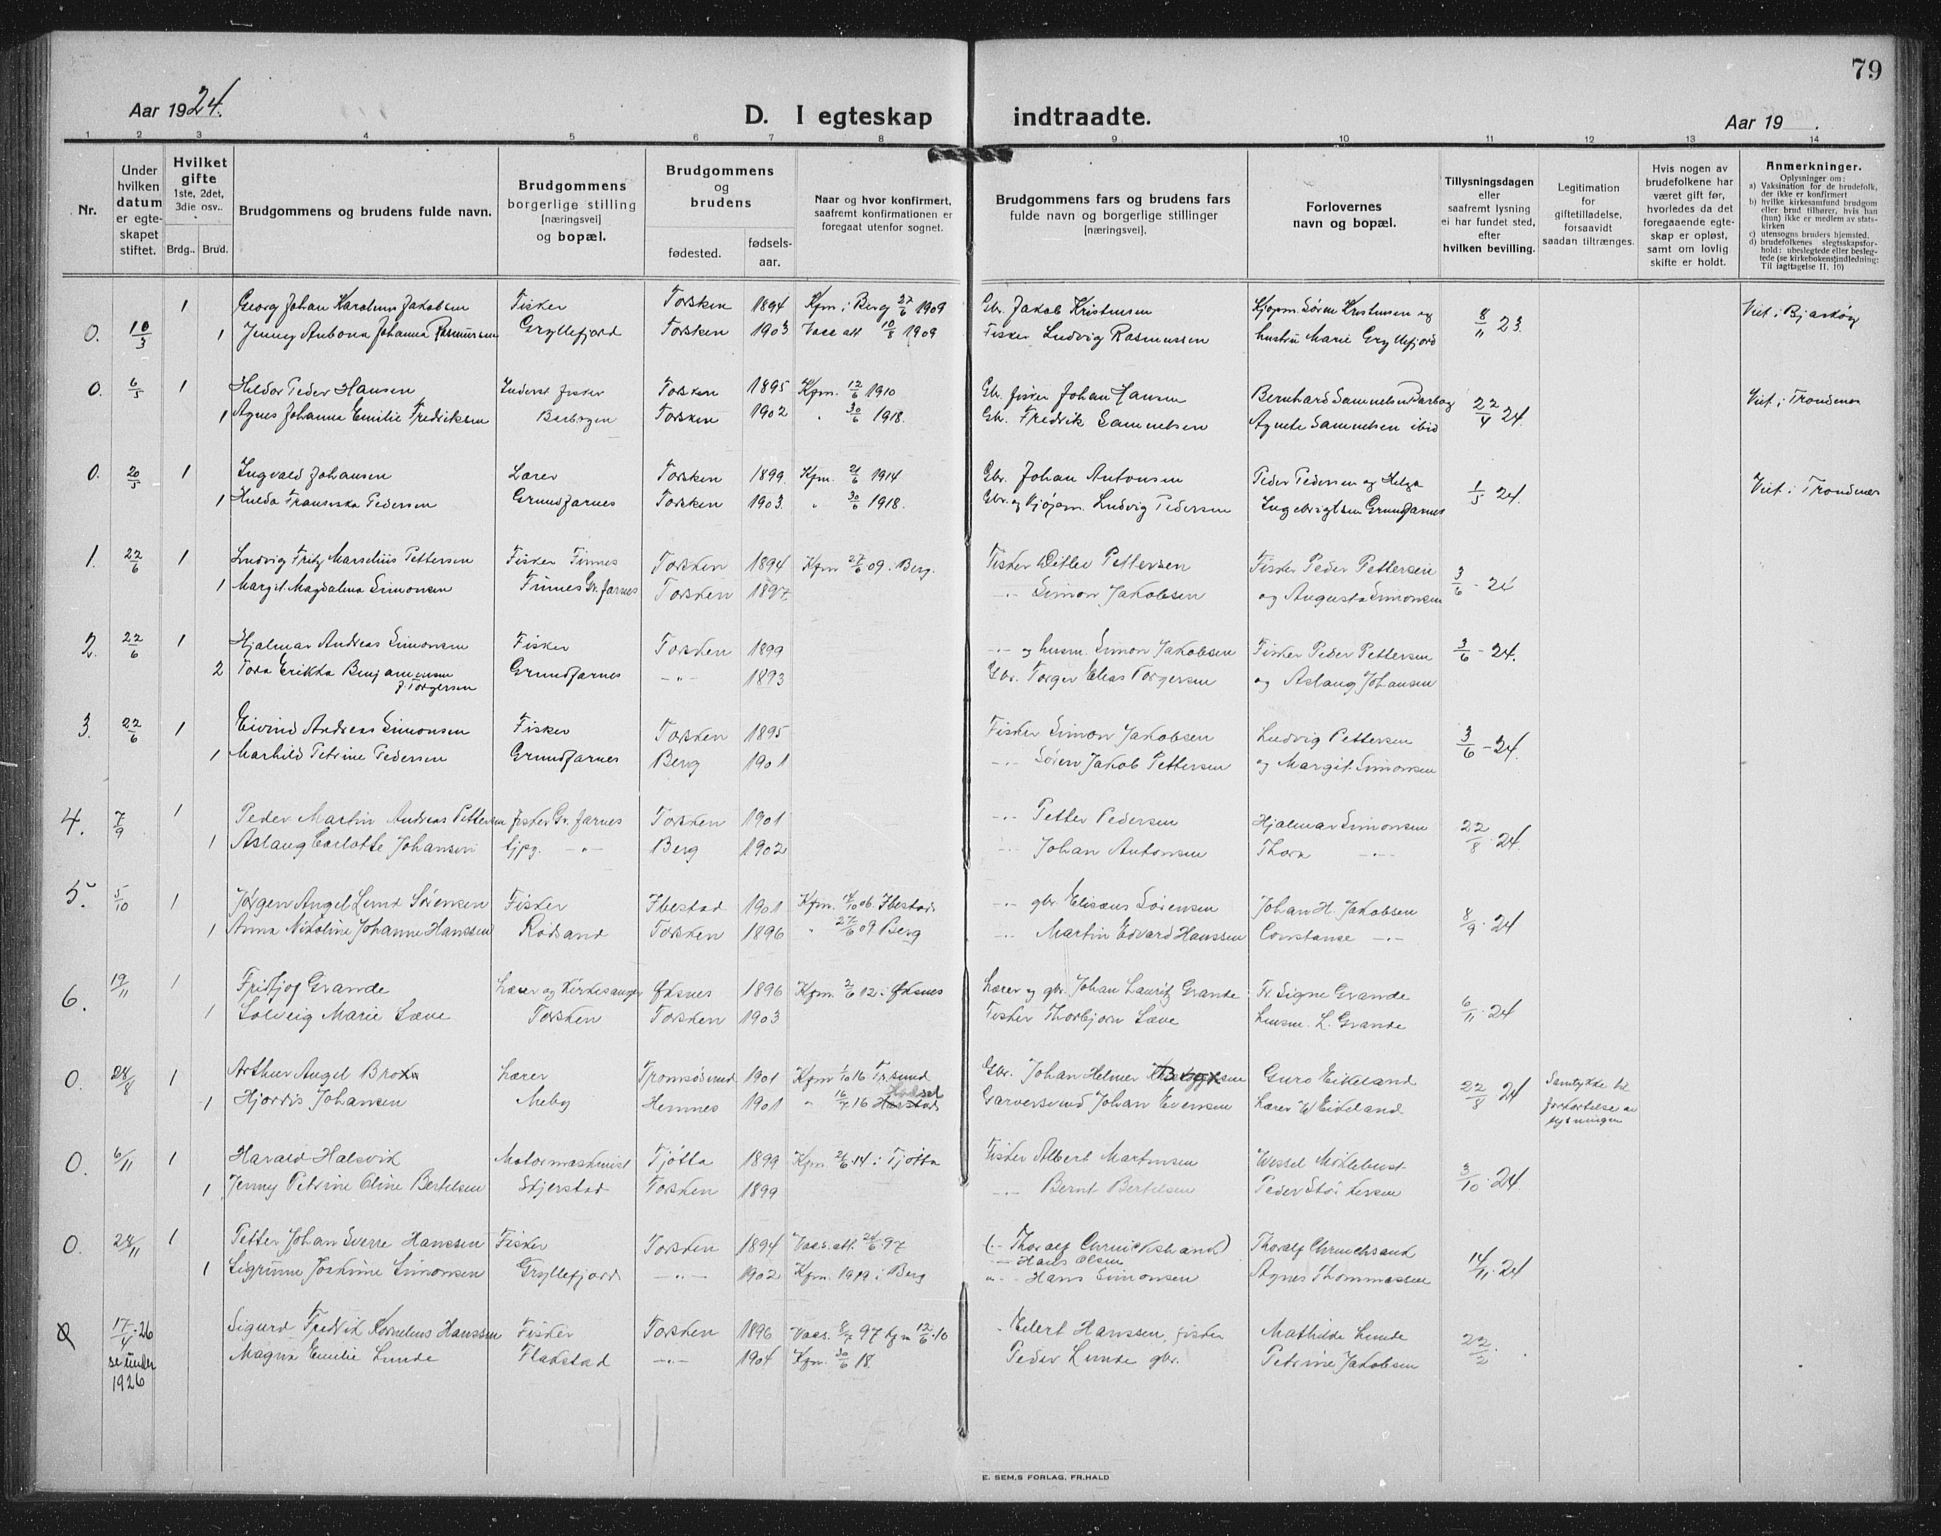 79
Aar 1924.
D. I egteskap indtraadte.
Aar 19 .
1 2 3 4 5 6 7 8 9 10 11 12 13 14
Nr.
Under hvilken datum er egteskapet stiftet.
Hvilket gifte 1ste, 2det, 3die osv..
Brdg.. Brud.
Brudgommens og brudens fulde navn.
Brudgommens borgerlige stilling (næringsvei) og bopæl.
Brudgommens og brudens
fødested.
fødselsaar.
Naar og hvor konfirmert, saafremt konfirmationen er foregaat utenfor sognet.
Brudgommens fars og brudens fars fulde navn og borgerlige stillinger (næringsvei).
Forlovernes navn og bopæl.
Tillysningsdagen eller saafremt lysning ei har fundet sted, efter hvilken bevilling.
Legitimation for giftetilladelse, forsaavidt saadan tiltrænges.
Hvis nogen av brudefolkene har været gift før, hvorledes da det foregaaende egteskap er opløst, samt om lovlig skifte er holdt.
Anmerkninger.
Oplysninger om:
a) Vaksination for de brudefolk, der ikke er konfirmert
b) hvilke kirkesamfund brudgom eller brud tilhører, hvis han (hun) ikke er medlem av statskirken
c) utensogns bruders hjemsted.
d) brudefolkenes slegtsskapsforhold: ubeslegtede eller beslegtede (se kirkebokens indledning: Til iagttagelse II. 10)
1 Georg Johan Karolius Jakobsen Fisker Torsken 1894 Kfm. i Berg 27/6 1909 Gbr. Jakob Kristensen Kjøpm. Søren Kristensen og Viet i Bjarkøy
0. 10/3 1 Jenny Antona Johanna Rasmussen Gryllefjord Torsken 1903 Vacc att 10/8 1909 Fisker Ludvig Rasmussen hustru Marie Gryllefjord 8/11 23.
0. 6/5 1 Hildor Peder Hansen Inderst fisker Torsken 1895 Kfm. 12/6 1910 Gbr. fisker Johan Hansen Bernhard Samuelsen Viet i Trondenes
1 Agnes Johanna Emilie Fredriksen Torsken 1902 " 30/6 1918. Gbr. Fredrik Samuelsen Agnete Samuelsen ibid 22/4 24.
0. 20/5 1 Ingvald Johansen Lærer Torsken 1899. Kfm. 21/6 1914 Gbr. Johan Antonsen Peder Pedersen og Helga Viet i Trondenes
1 Hulda Fransiska Pedersen Grundfarnes Torsken 1903. " 30/6 1918. Gbr. og Kjøpm. Ludvig Pedersen Ingebrigtsen Grundfarnes 1/5 24.
1. 22/6 1 Ludvig Fritz Marselius Pettersen Fisker Finnes Torsken 1894 Kfm 27/6 09. Berg. Fisker Ditlev Pettersen Fisker Peder Pettersen
1 Margit Magdalena Simonsen Finnes Gr. farnes Torsken 1897. -"- Simon Jakobsen og Augusta Simonsen 3/6 - 24
2. 22/6 1 Hjalmar Andreas Simonsen Fisker Torsken 1899 -"- og husm. Simon Jakobsen Fisker Peder Pettersen 3/6 - 24.
2 Tora Erikka Benjaminsen f. Torgersen Grundfarnes -"- 1893 Gbr. Torger Elias Torgersen og Aslaug Johansen
3. 22/6 1 Eivind Andreas Simonsen Fisker Torsken 1895 Fisker Simon Jakobsen Ludvig Pettersen
1 Marhild Petrine Pedersen Grundfarnes Berg 1901 -"- Søren Jakob Pettersen og Margit Simonsen 3/6 - 24.
4. 7/9 1 Peder Martin Andreas Pettersen fisker Gr. farnes Torsken 1901 -"- Petter Pedersen Hjalmar Simonsen
1 Aslaug Carlotte Johansen -"- Berg 1902 -"- Johan Antonsen Thora -"- 22/8 24.
5. 5/10 1 Jørgen Angel Lund Sørensen Fisker Ibestad 1901 Kfm. 14/10 06 Ibestad -"- gbr. Elisæus Sørensen Johan H. Jakobsen
1 Anna Nikoline Johanne Hanssen Rødsand Torsken 1896 " 27/6 09 Berg -"- Martin Edvard Hanssen Constanse -"- 8/9 24
6. 19/11 1 Fridtjof Grande Lærer og Kirkesanger Øksnes 1896 Kfm. 2/6 12 i Øksnes Lærer og gbr. Johan Lauritz Grande Fr. Signe Grande
1 Solveig Marie Læve Torsken Torsken 1903 Fisker Thorbjørn Læve Lensm. L. Grande 6/11 24
0. 24/8 1 Arthur Angel Brox Lærer Tromsøsund 1901 Kfm 1/10 16 Tr.sund Gbr. Johan Helmer Guro Eikeland Samtykke til
1 Hjørdis Johansen Meby Hemnes 1901 " 16/7 16 Garversvend Johan Evensen Lærer Eikeland 22/8 24 forkortelse av lysningen
0. 6/11 1 Harald Halsvik Motormaskinist Tjøtta 1899 Kfm. 21/6 14 i Tjøtta Fisker Albert Martinsen Wessel Möklebust
1 Jenny Petrine Oline Bertelsen Skjerstad Torsken 1899 -"- Bernt Bertelsen Peder 3/10 24
0. 24/11 1 Petter Johan Sverre Hanssen Fisker Torsken 1894 Vacc. att. 24/6 97 (-"- Thoralf) Thoralf
Hans Olsen
1 Sigrunn Joakime Simonsen Gryllefjord -"- 1902 Kfm. 1919 i Berg " - Hans Simonsen Agnes Thommassen 14/11 24
0 17/4 - 26 Sigurd Fredrik Kornelius Hanssen Fisker Torsken 1896 Vacc. 8/7 97 kfm 12/6 10 Eilert Hanssen, fisker Mathilde Lunde
se under 1926 Magna Emilie Lunde Flakstad -"- 1904 Kfm. 30/6 18. Peder Lunde gbr. Petrine Jakobsen 22/2
E. SEM,S FORLAG, FR.HALD